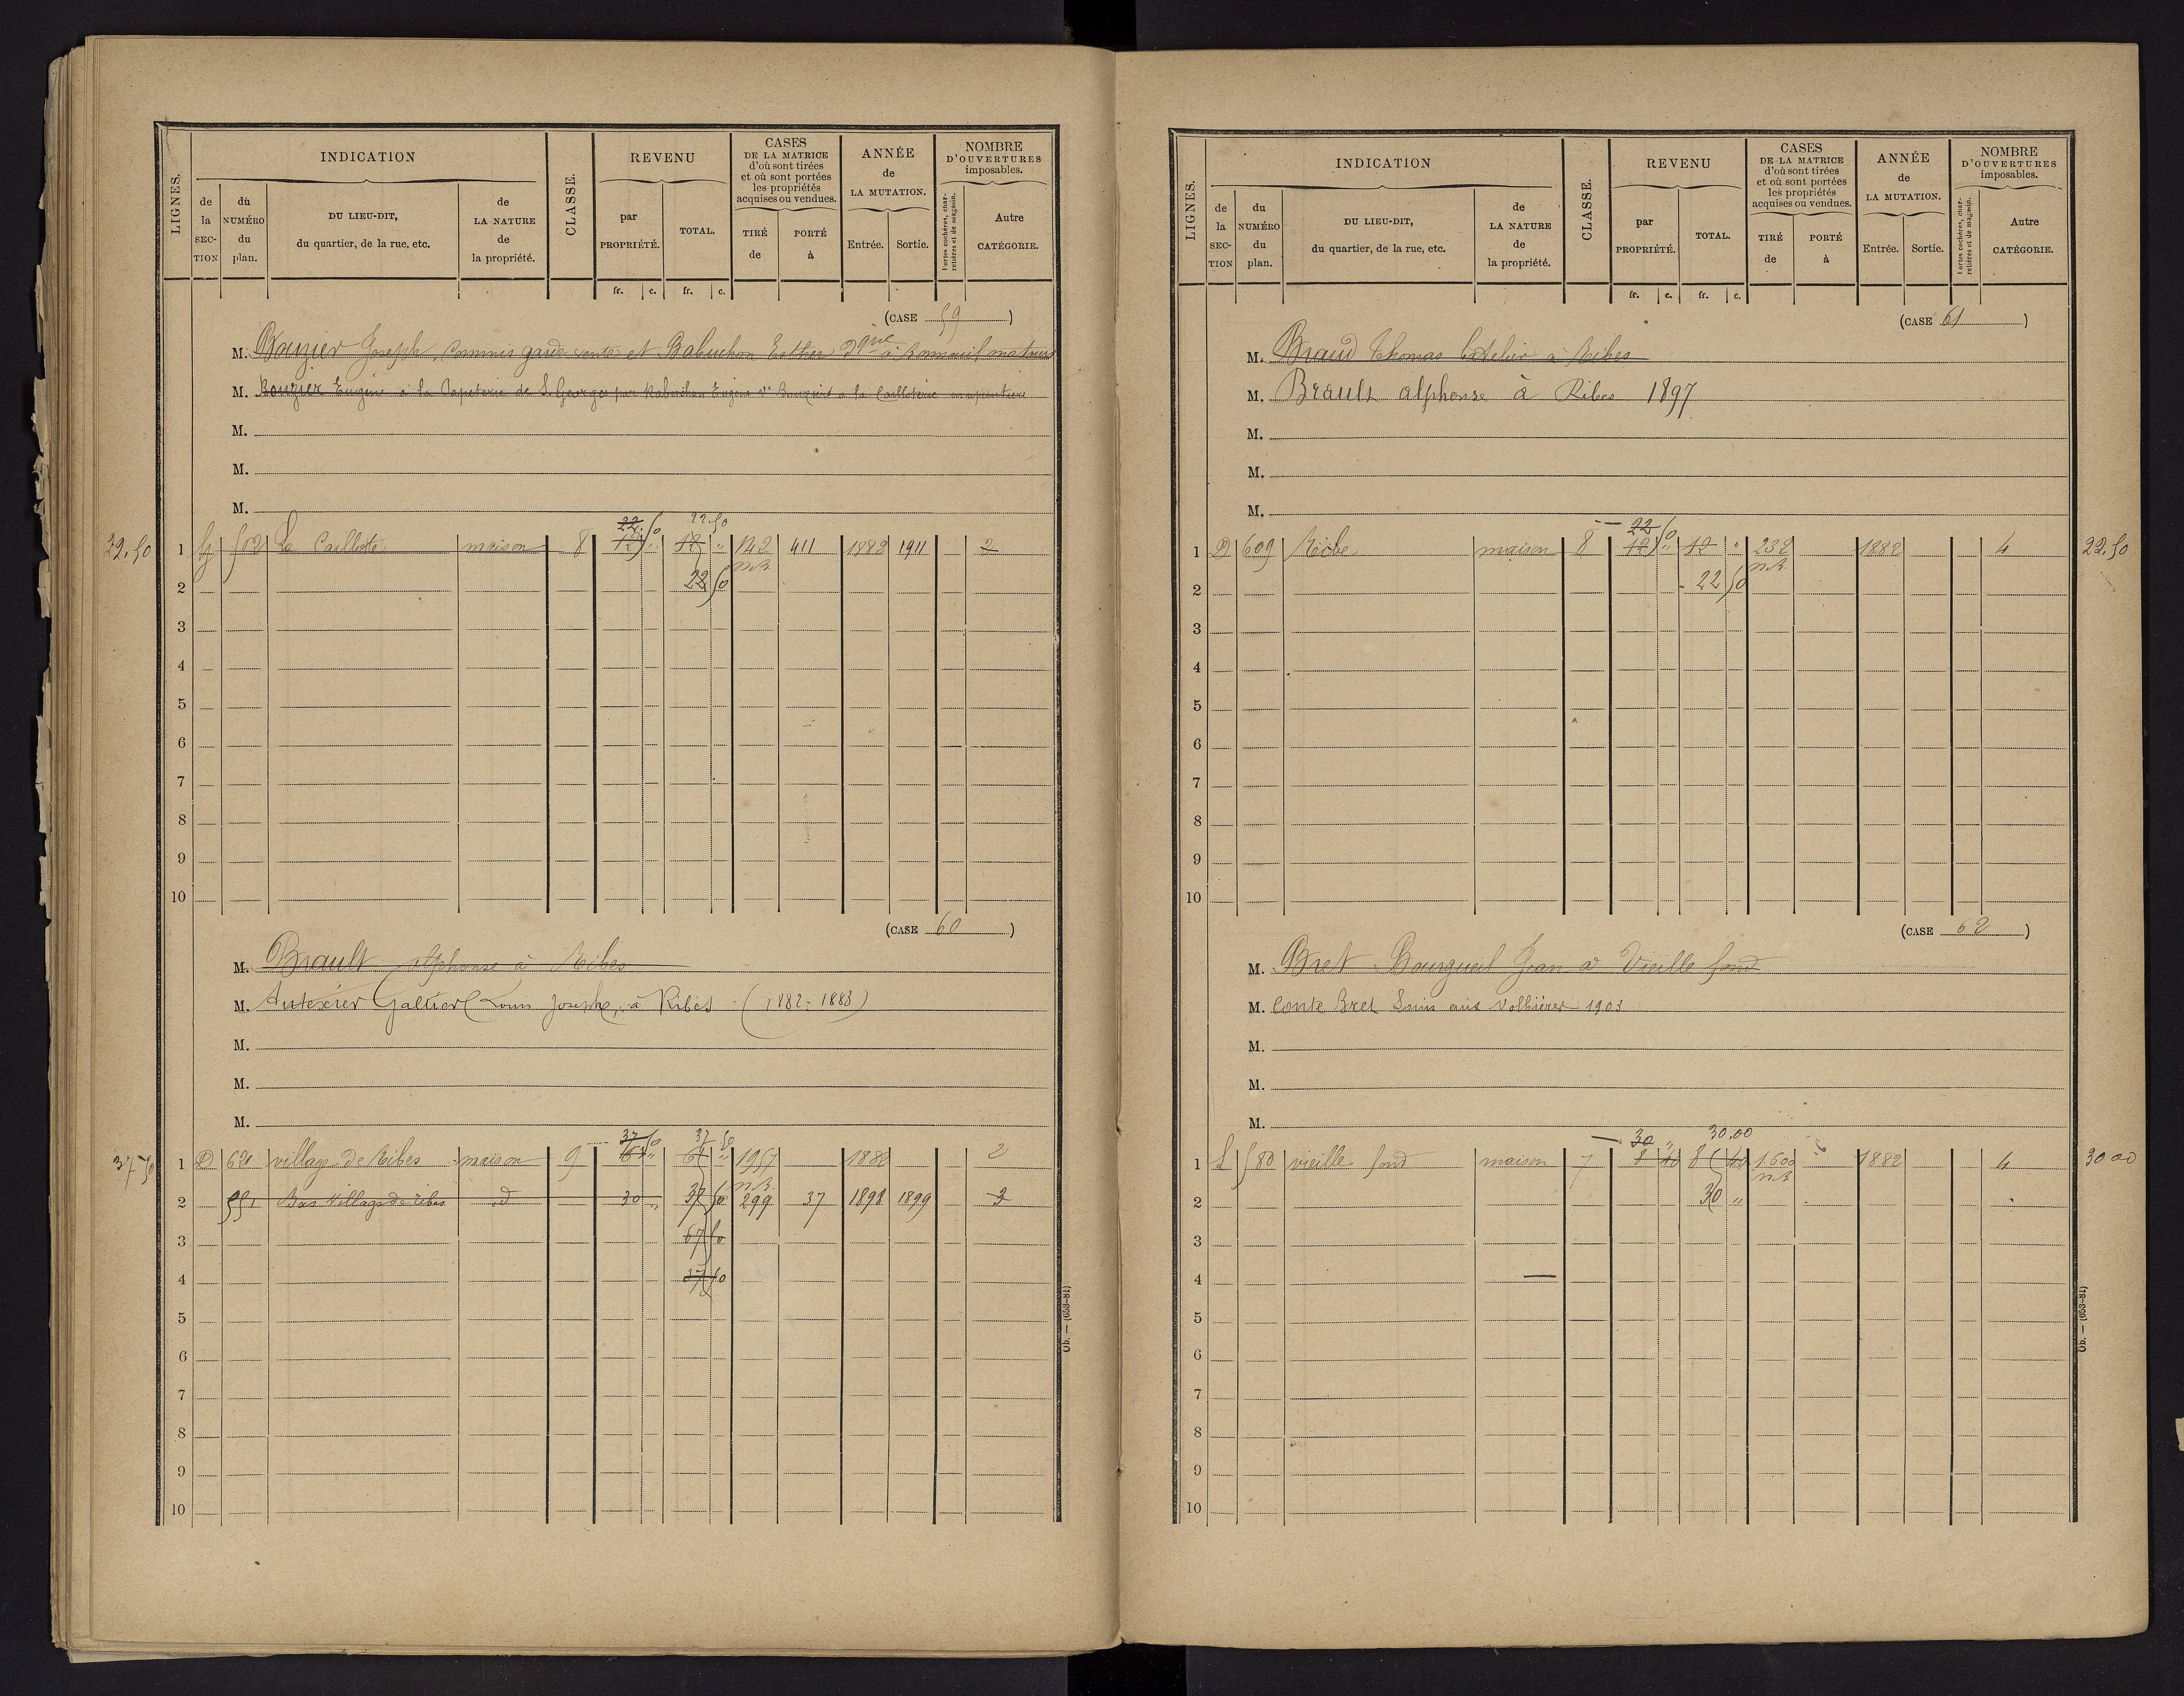 LIGNES.
INDICATION
de la SECTION
du NUMÉRO du plan.
DU LIEU-DIT, du quartier, de la rue, etc.
de LA NATURE de la propriété.
CLASSE.
REVENU
par PROPRIÉTÉ.
TOTAL.
fr. c. fr. c.
CASES DE LA MATRICE d'où sont tirées et où sont portées les propriétés acquises ou vendues.
TIRÉ de
PORTÉ à
ANNÉE de LA MUTATION.
Entrée. Sortie.
NOMBRE D'OUVERTURES imposables.
Portes cochères, charretières et de magasin.
Autre CATÉGORIE.
(CASE 59)
M. Bouzier Joseph, Commis garde vente et Babuchon Esther à Bonneuil matours
M. Bouzier Eugène à la Papeterie de St Georges par Rabuchon Vve Bouzier à la Cailloterie
M.
M.
M.
22.50 22.50
22.50 1 502 La Caillote maison 8 12 " 12 " 142 411 1882 1911 2
2 22 50 n.R.
3
4
5
6
7
8
9
10
(CASE 60)
M. Brault alphonse à Ribes
M. Autexier Galtier Louis Joseph, à Ribes (1882-1883)
M.
M.
M.
37 50 37 50
37-50 1 D 621 village de Ribes maison 9 1957 1882 2
n.R.
2 551 Bas Village de ribes d 30 " 37 50 299 37 1898 1899 3
3 67 50
4 37 50
5
6
7
8
9
10
Ob. — (653-81)
LIGNES.
INDICATION
de la SECTION
du NUMÉRO du plan.
DU LIEU-DIT, du quartier, de la rue, etc.
de LA NATURE de la propriété.
CLASSE.
REVENU
par PROPRIÉTÉ.
TOTAL.
fr. c. fr. c.
CASES DE LA MATRICE d'où sont tirées et où sont portées les propriétés acquises ou vendues.
TIRÉ de
PORTÉ à
ANNÉE de LA MUTATION.
Entrée. Sortie.
NOMBRE D'OUVERTURES imposables.
Portes cochères, charretières et de magasin.
Autre CATÉGORIE.
(CASE 61)
M. Braud Thomas à Ribes
M. Brault alphonse à Ribes 1897
M.
M.
M.
22 50
1 D 609 Ribe maison 8 12 " 12 " 232 1882 4 22.50
2 22 50 n.R.
3
4
5
6
7
8
9
10
(CASE 62)
M. Bret Bourgueil Jean à Vieille fond
M. Conte Bret Louis aux Volbières 1903
M.
M.
M.
30 " 30.00
1 L 580 vieille fond maison 7 8 40 8 40 1600 1882 4 30 00
2 30 " n.R.
3
4
5
6
7
8
9
10
Ob. — (653-81)